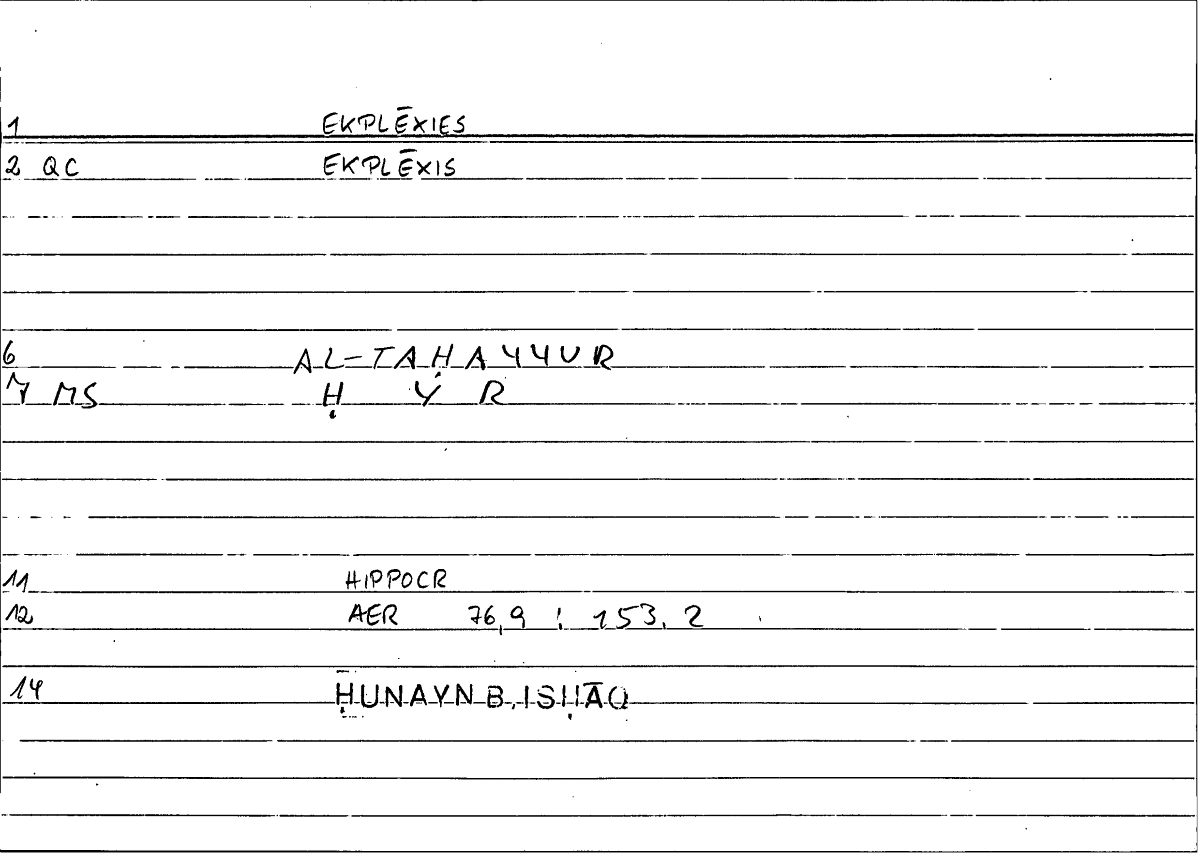 1 EKPLĒXIES
2 QC EKPLĒXIS
6 AL-TAḤAYYUR
7 MS Ḥ Y R
11 HIPPOCR
12 AER 76,9 : 153,2
14 ḤUNAYN B. ISḤĀQ